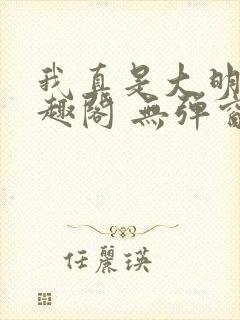 我真是大明
趣阁 無彈窗
任麗瑛